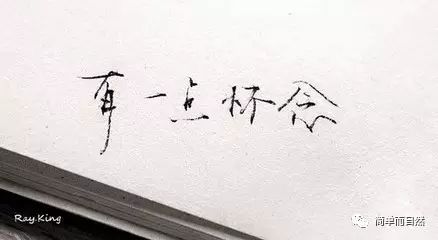 有一点怀念
Ray.King
简单而自然